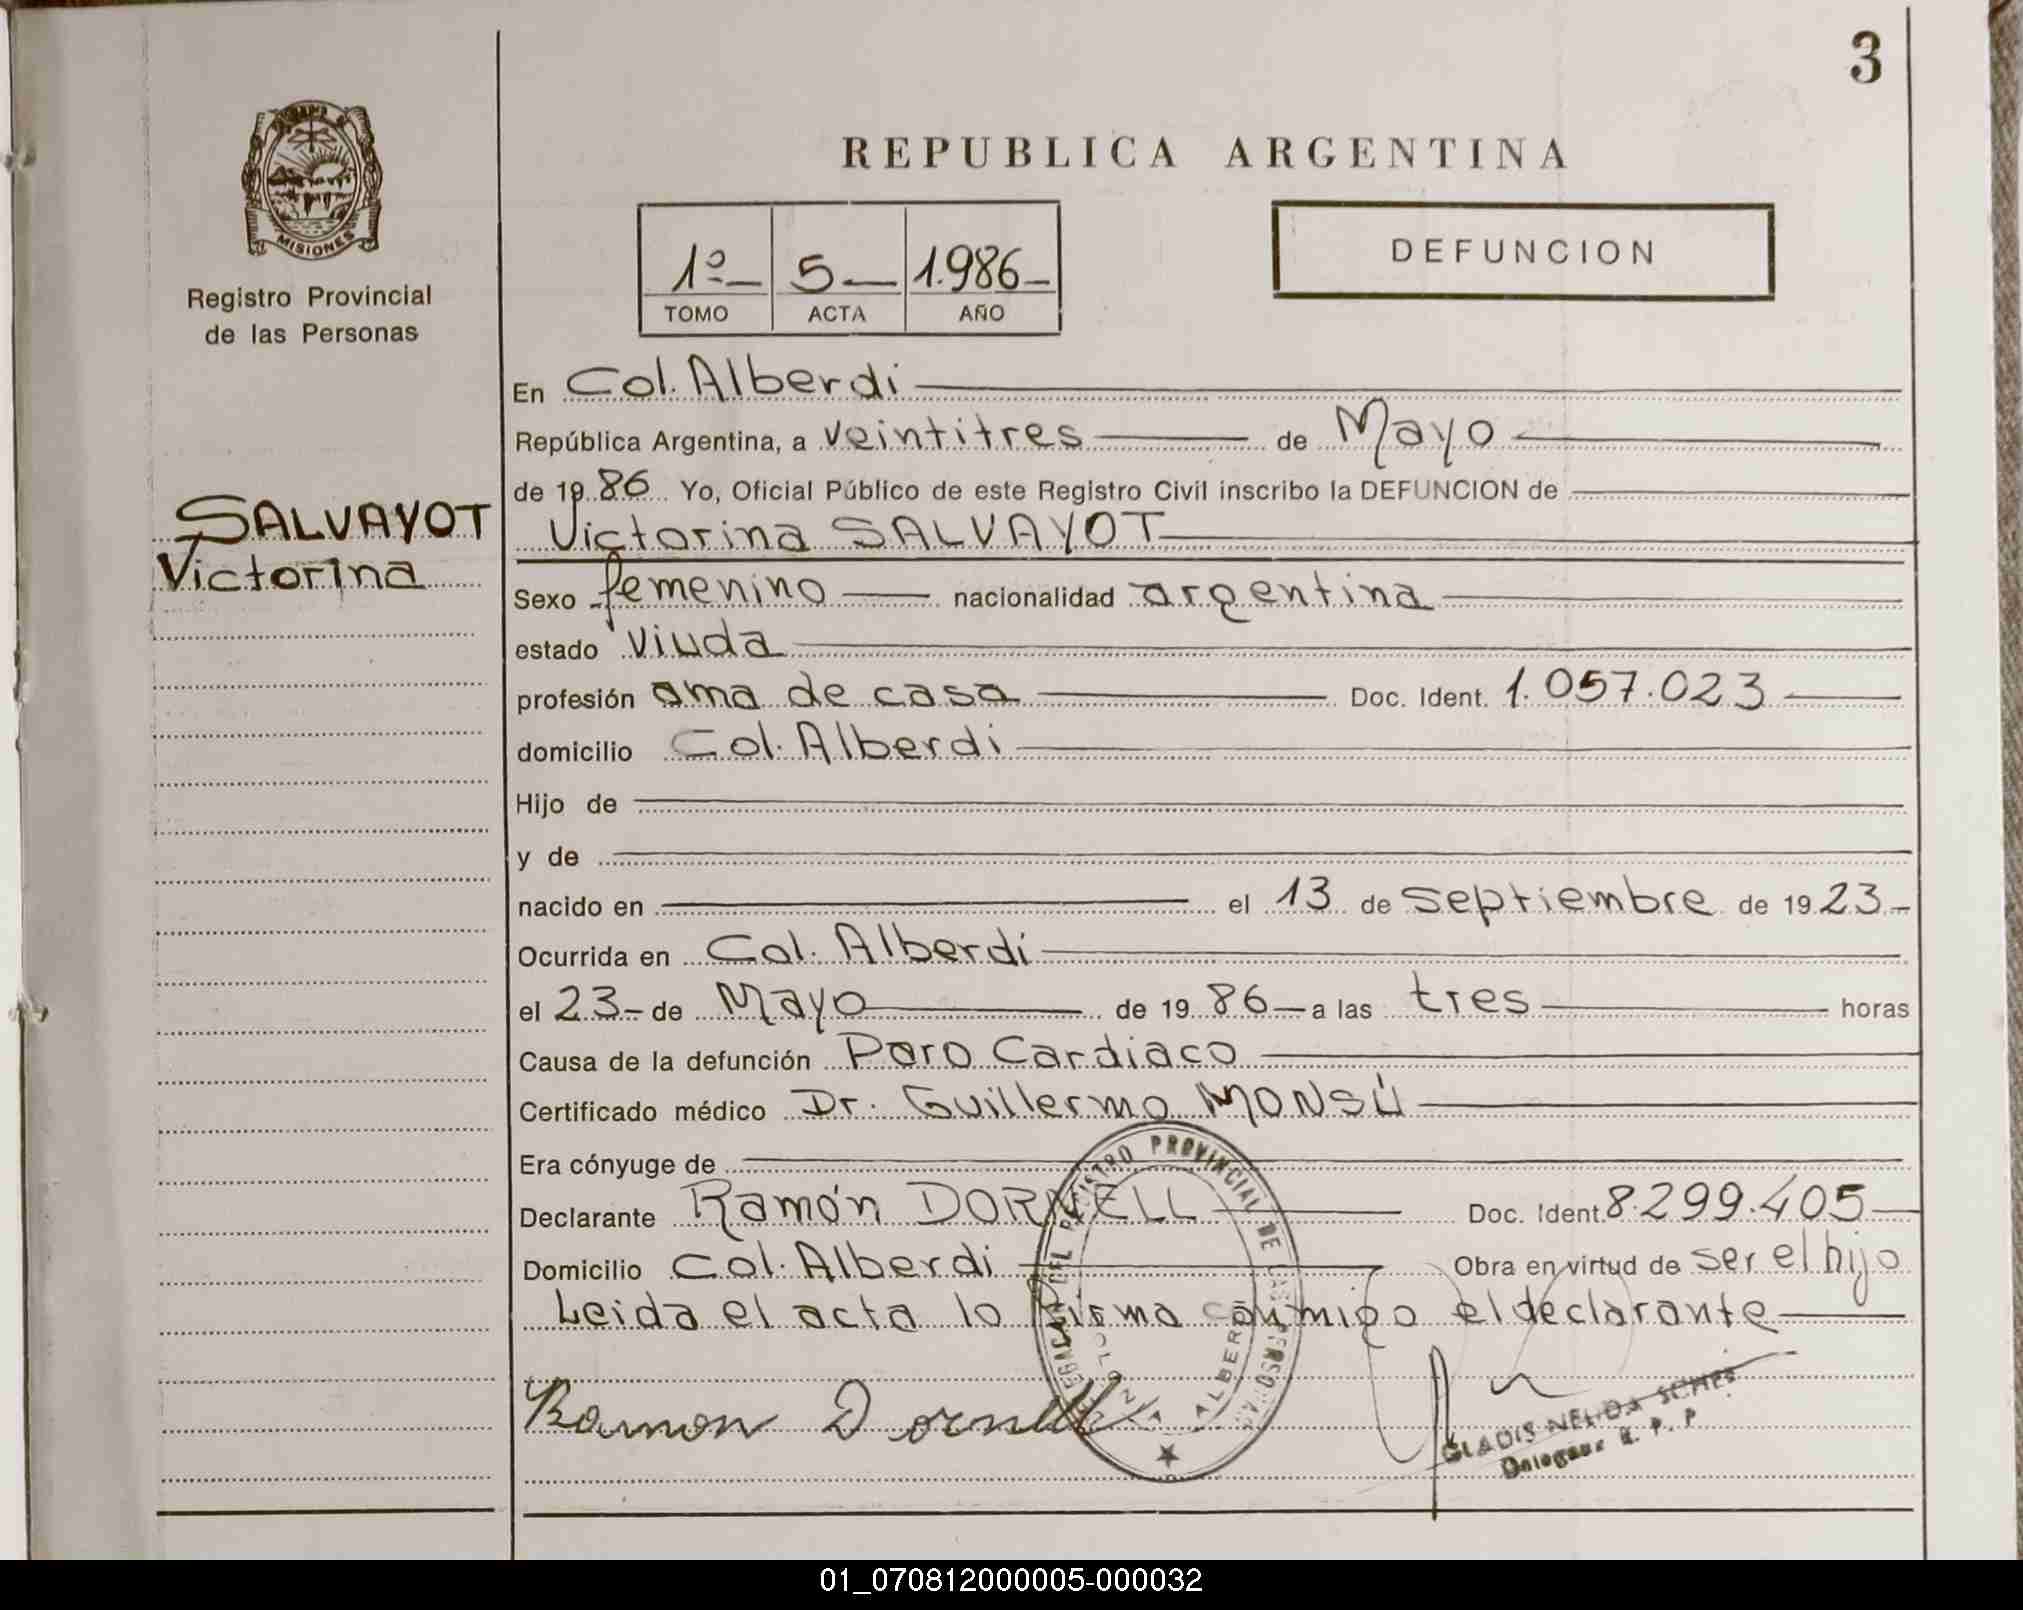 3
MISIONES
Registro Provincial
de las Personas
REPUBLICA ARGENTINA
1º 5 1.986
TOMO ACTA AÑO
DEFUNCION
SALVAYOT
Victorina
En Col. Alberdi
República Argentina, a veintitres de Mayo
de 19 86 Yo, Oficial Público de este Registro Civil inscribo la DEFUNCION de
Victorina SALVAYOT
Sexo femenino nacionalidad argentina
estado viuda
profesión ama de casa Doc. Ident. 1.057.023
domicilio Col. Alberdi
Hijo de
y de
nacido en el 13 de septiembre de 19 23
Ocurrida en Col. Alberdi
el 23 de Mayo de 19 86 a las tres horas
Causa de la defunción Paro Cardiaco
Certificado médico Dr. Guillermo MONSÚ
Era cónyuge de
Declarante Ramón DORNELL Doc. Ident. 8.299.405
Domicilio Col. Alberdi Obra en virtud de ser el hijo
Leida el acta lo firma conmigo el declarante
DEL REGISTRO PROVINCIAL DE LAS PERSONAS
COLONIA ALBERDI
Ramon Dornell
GLADIS NELIDA
R. P. P
01_070812000005-000032